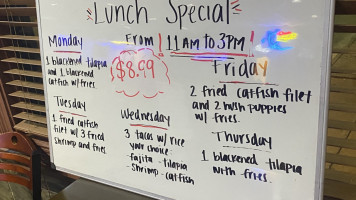 Lunch Special
From ! 11 AM to 3PM !
$8.99
Monday
1 blackened tilapia
and 1 blackened
catfish w/ fries
Tuesday
1 fried catfish
filet w/ 3 fried
Shrimp and fries.
Wednesday
3 tacos w/ rice
your choice:
fajita - tilapia
Shrimp - catfish
Thursday
1 blackened tilapia
with fries
Friday
2 fried catfish filet
and 2 hush puppies
w/ fries.